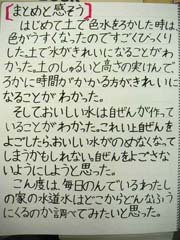 【まとめと思そう】
はじめて土で色水をろかした時は
色がうすくなったのですごくびっくり
した。土で水がきれいになることがわ
かった。土のしゅるいと高さの実けんで
ろかに時間がかかる方がきれいに
なることがわかった。
そしておいしい水は自ぜんが作って
いることがわかった。これい上自ぜんを
よごしたら、おいしい水がのめなくなって
しまうかもしれない。自ぜんをよごさな
いようにしようと思った。
こん度は、毎日のんでいるわたし
の家の水道水はどこからどんなふう
にくるのか調べてみたいと思った。